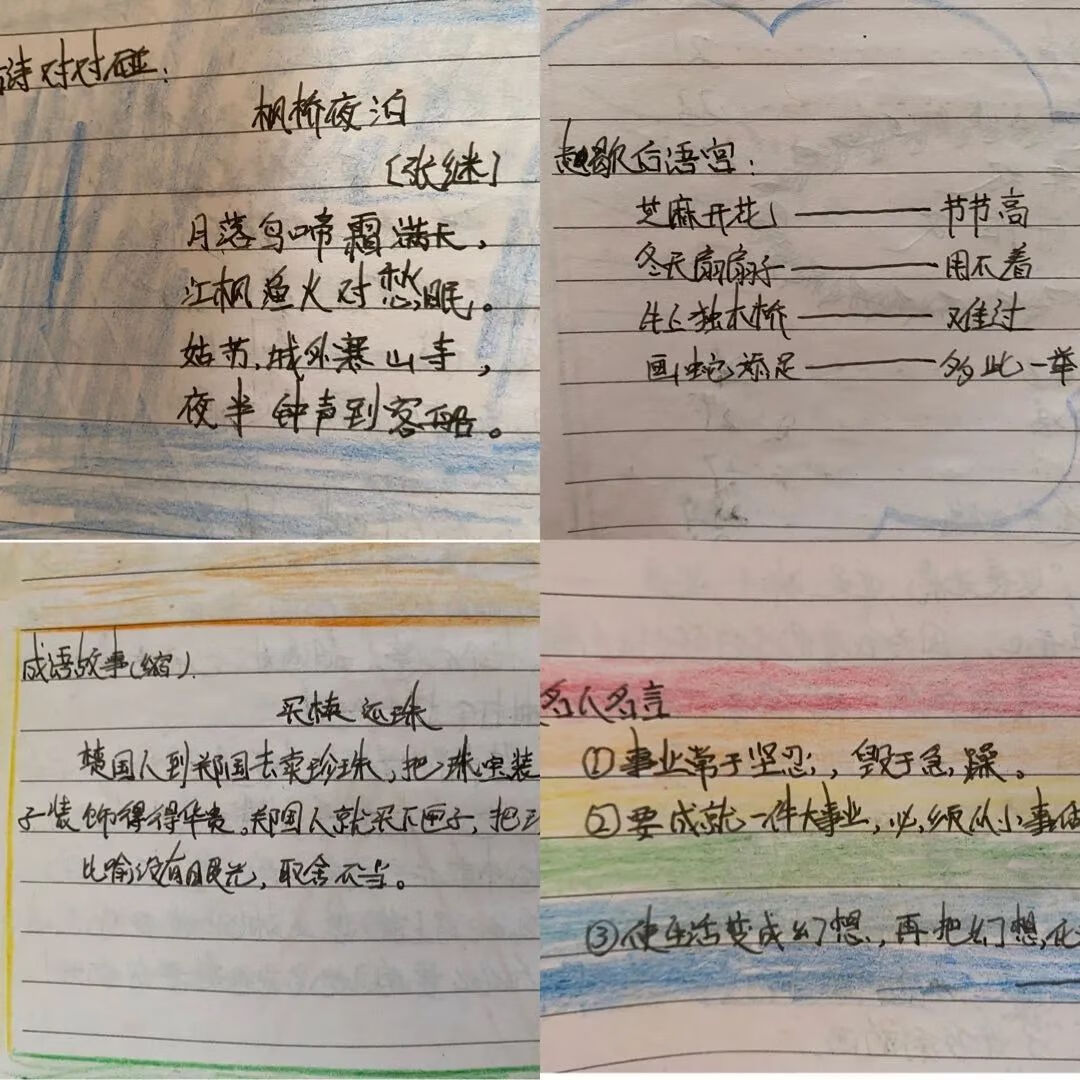 诗对对碰：
枫桥夜泊
[张继]
月落鸟啼霜满天，
江枫渔火对愁眠。
姑苏城外寒山寺，
夜半钟声到客船。
趣歇后语宫：
芝麻开花——节节高
冬天扇扇子——用不着
牛独木桥——难过
画蛇添足——多此一举
成语故事(缩).
买椟还珠
楚国人到郑国去卖珍珠，把珠宝装
子装饰得得华贵。郑国人就买下匣子，把
比喻没有眼光，取舍不当。
名人名言
①事业常于坚忍，毁于急躁。
②要成就一件大事业，必须从小事做
③使生活变成幻想，再把幻想化